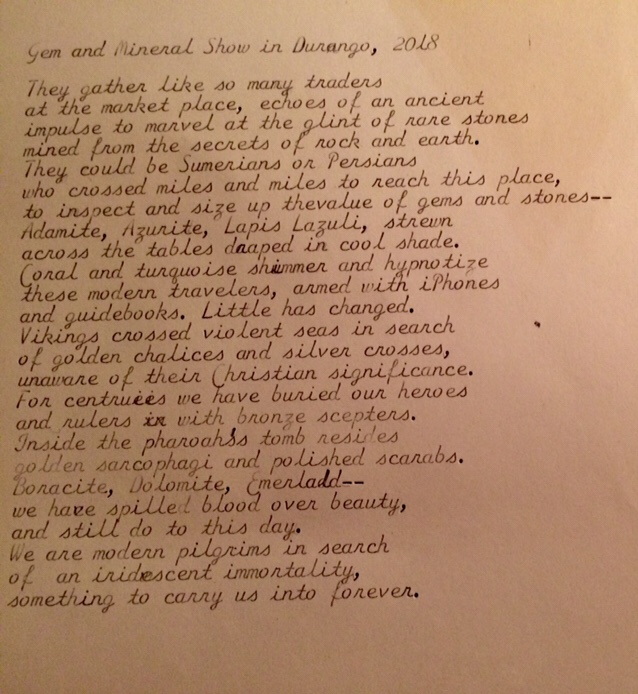 Gem and Mineral Show in Durango, 2018
They gather like so many traders
at the market place, echoes of an ancient
impulse to marvel at the glint of rare stones
mined from the secrets of rock and earth.
They could be Sumerians or Persians
who crossed miles and miles to reach this place,
to inspect and size up thevalue of gems and stones--
Adamite, Azurite, Lapis Lazuli, strewn
across the tables draped in cool shade.
Coral and turquoise shimmer and hypnotize
these modern travelers, armed with iPhones
and guidebooks. Little has changed.
Vikings crossed violent seas in search
of golden chalices and silver crosses,
unaware of their Christian significance.
For centruees we have buried our heroes
and rulers in with bronze scepters.
Inside the pharoahs tomb resides
golden sarcophagi and polished scarabs.
Boracite, Dolomite, Emerladd--
we have spilled blood over beauty,
and still do to this day.
We are modern pilgrims in search
of an iridescent immortality,
something to carry us into forever.